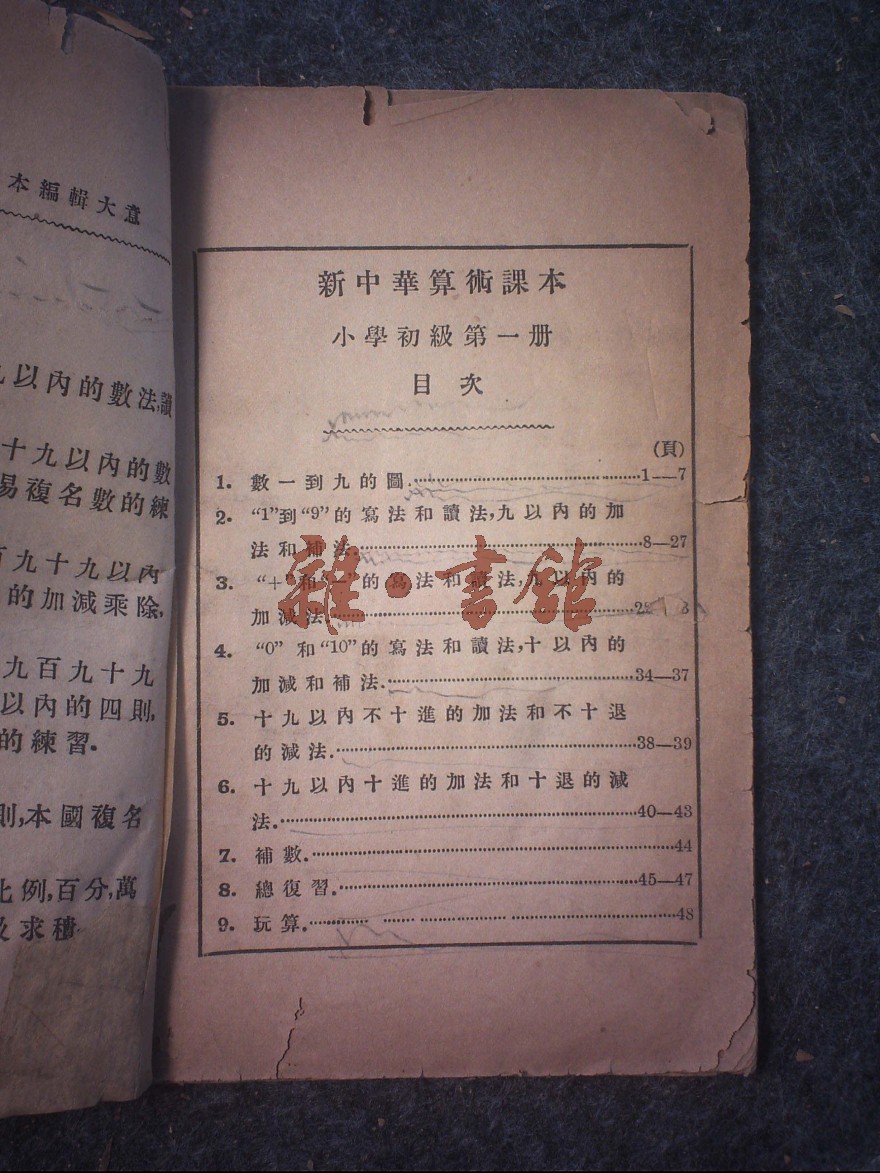 本編輯大意
以內的數法,讀
十九以內的數
易複名數的練
百九十九以內
的加減乘除,
九百九十九
以內的四則,
的練習.
則,本國複名
比例,百分,
求積
新中華算術課本
小學初級第一册
目次
(頁)
1. 數一到九的圖.……1—7
2. “1”到“9”的寫法和讀法,九以內的加
法和補法.……8—27
3. “+”和“—”的寫法和讀法,九以內的
加減法.……
4. “0”和“10”的寫法和讀法,十以內的
加減和補法.……34—37
5. 十九以內不十進的加法和不十退
的減法.……38—39
6. 十九以內十進的加法和十退的減
法.……40—43
7. 補數.……44
8. 總復習.……45—47
9. 玩算.……48
雜·書館